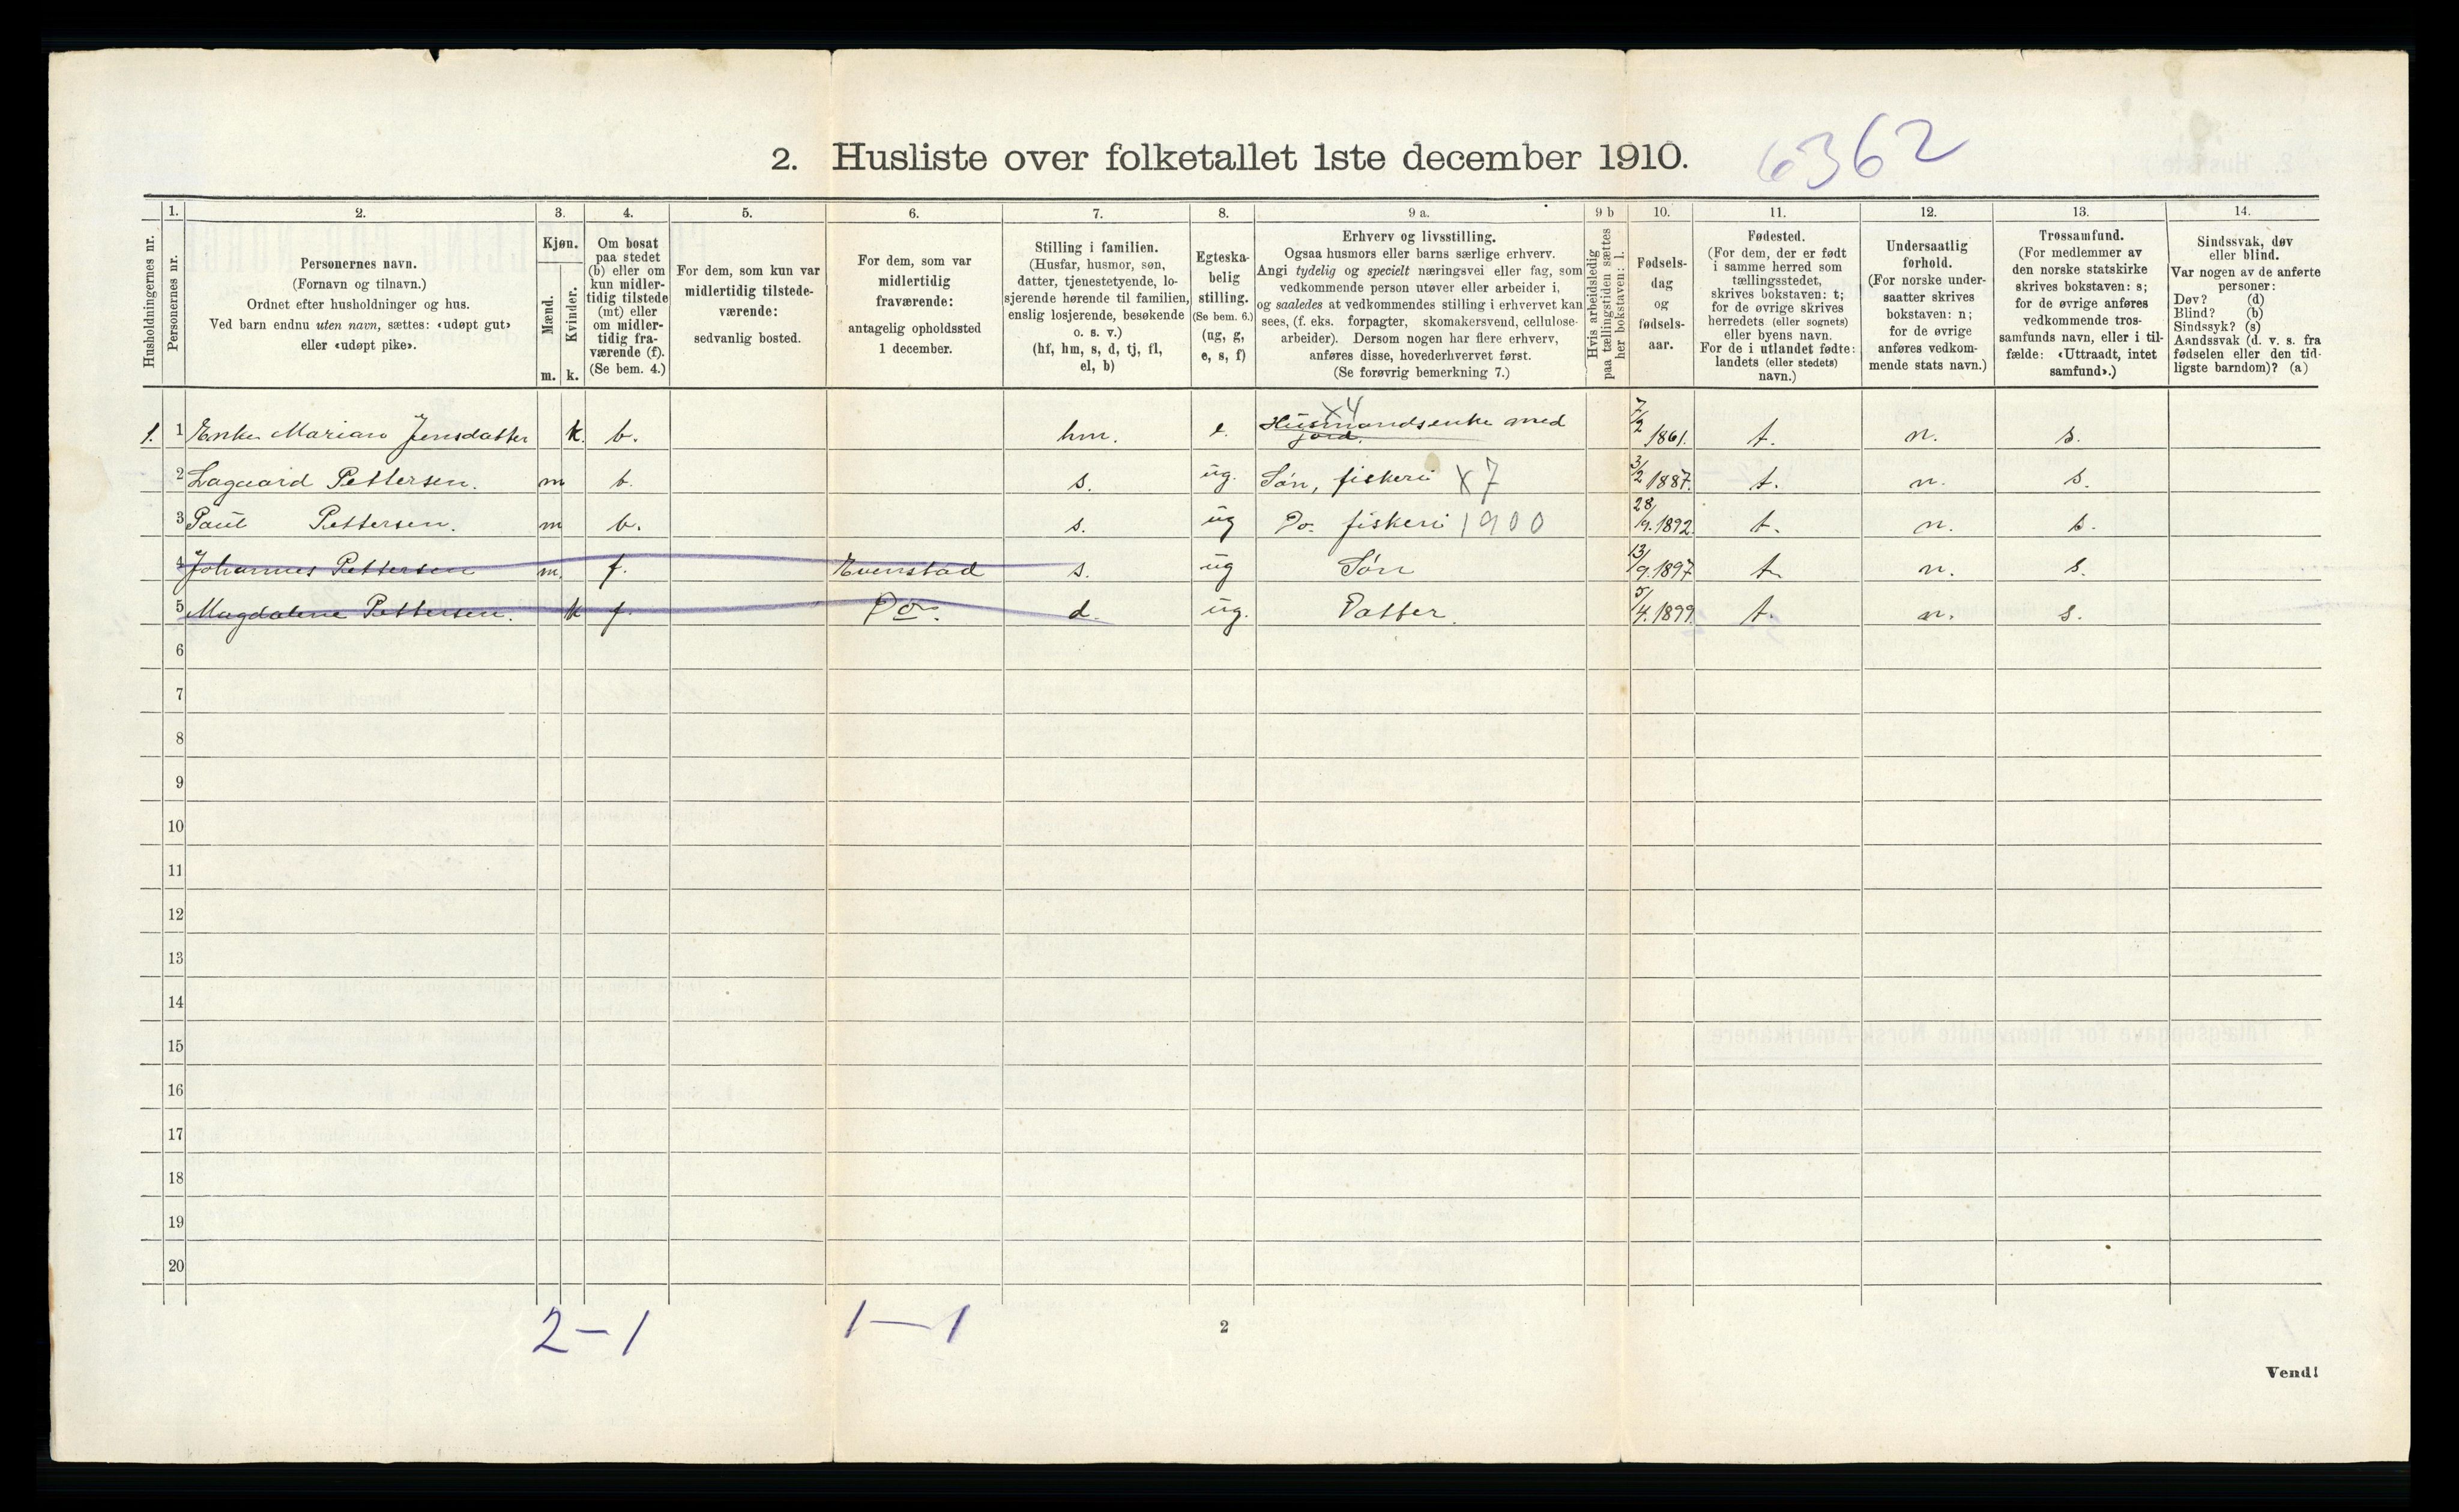 2. Husliste over folketallet 1ste december 1910.
6362
Husholdningernes nr.
1.
Personernes nr.
2.
Personernes navn.
(Fornavn og tilnavn.)
Ordnet efter husholdninger og hus.
Ved barn endnu uten navn, sættes: «udøpt gut»
eller «udøpt pike».
3.
Kjøn.
Mænd.
Kvinder.
m. k.
4.
Om bosat
paa stedet
(b) eller om
kun midler-
tidig tilstede
(mt) eller
om midler-
tidig fra-
værende (f).
(Se bem. 4.)
5.
For dem, som kun var
midlertidig tilstede-
værende:
sedvanlig bosted.
6.
For dem, som var
midlertidig
fraværende:
antagelig opholdssted
1 december.
7.
Stilling i familien.
(Husfar, husmor, søn,
datter, tjenestetyende, lo-
sjerende hørende til familien,
enslig losjerende, besøkende
o. s. v.)
(hf, hm, s, d, tj, fl,
el, b)
8.
Egteska-
belig
stilling.
(Se bem. 6.)
(ug, g,
e, s, f)
9 a.
Erhverv og livsstilling.
Ogsaa husmors eller barns særlige erhverv.
Angi tydelig og specielt næringsvei eller fag, som
vedkommende person utøver eller arbeider i,
og saaledes at vedkommendes stilling i erhvervet kan
sees, (f. eks. forpagter, skomakersvend, cellulose-
arbeider). Dersom nogen har flere erhverv,
anføres disse, hovederhvervet først.
(Se forøvrig bemerkning 7.)
9 b
Hvis arbeidsledig
paa tællingstiden sættes
her bokstaven: l.
10.
Fødsels-
dag
og
fødsels-
aar.
11.
Fødested.
(For dem, der er født
i samme herred som
tællingsstedet,
skrives bokstaven: t;
for de øvrige skrives
herredets (eller sognets)
eller byens navn.
For de i utlandet fødte:
landets (eller stedets)
navn.)
12.
Undersaatlig
forhold.
(For norske under-
saatter skrives
bokstaven: n;
for de øvrige
anføres vedkom-
mende stats navn.)
13.
Trossamfund.
(For medlemmer av
den norske statskirke
skrives bokstaven: s;
for de øvrige anføres
vedkommende tros-
samfunds navn, eller i til-
fælde: «Uttraadt, intet
samfund».)
14.
Sindssvak, døv
eller blind.
Var nogen av de anførte
personer:
Døv? (d)
Blind? (b)
Sindssyk? (s)
Aandssvak (d. v. s. fra
fødselen eller den tid-
ligste barndom)? (a)
x4
1. 1 Enke Marian Jensdatter k. b. hm. e. Husmandsenke med jord. 7/2 1861. t. n. s.
2 Lagaard Pettersen. m b. s. ug. Søn, fiskeri x7 3/2 1887. t. n. s.
3 Paul Pettersen. m b. s. ug Do. fiskeri 1900 28/9. 1892 t. n. s.
4 Johannes Pettersen m. f. Evenstad s. ug Søn 13/9. 1897 t. n. s.
5 Magdalene Pettersen. k f. Do. d. ug. Datter. 5/4. 1899. t. n. s.
6
7
8
9
10
11
12
13
14
15
16
17
18
19
20
2-1 1-1
2
Vend!